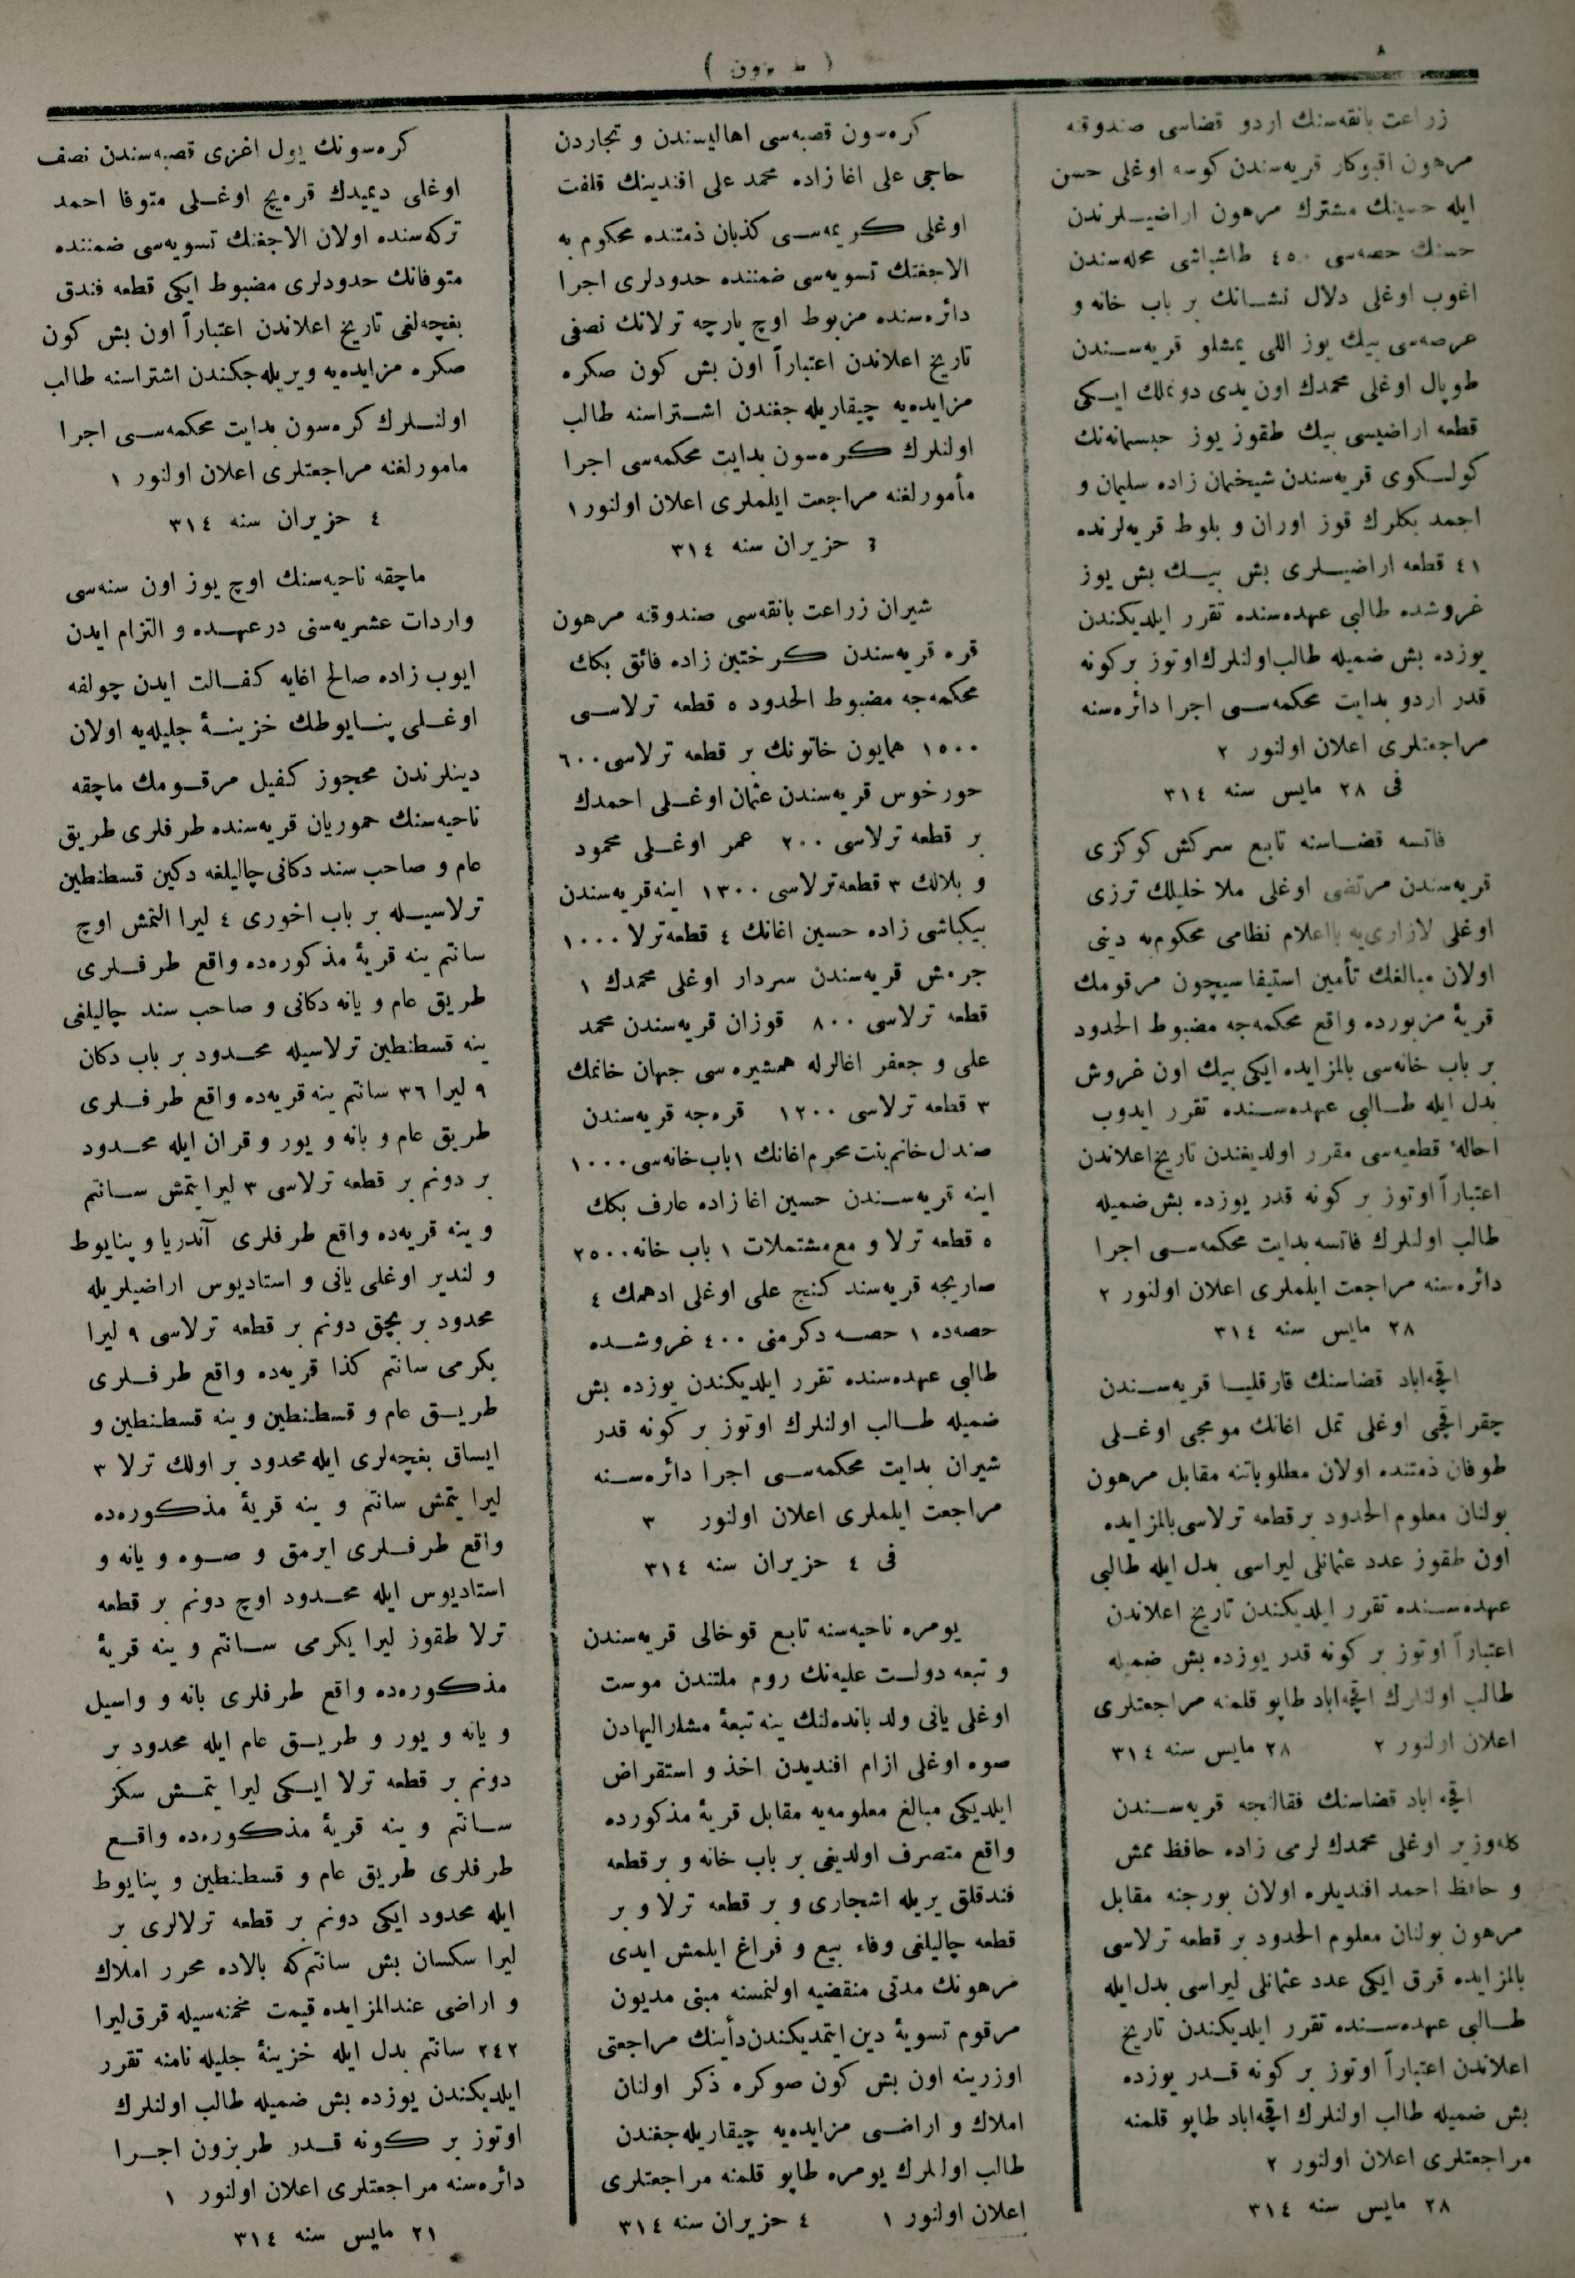 ٨
( طربزون )
زراعت بانقه‌سنك اردو قضاسی صندوقنه
مرهون اقپوكار قریه‌سندن كوسه اوغلی حسن
ایله حسینك مشترك مرهون اراضیـلرندن
حسنك حصه‌سی ٤٥٠ طاشباشی محله‌سندن
اغوب اوغلی دلال نشـانك بر باب خانه و
عرصه‌سی بیك یوز اللی یمشلو قریه‌سـندن
طوپال اوغلی محمدك اون یدی دونملك ایـكی
قطعه اراضیسی بیك طقوز یوز
كولـكوی قریه‌سندن شیخمان زاده سلیمان و
احمد بكلرك قوز اوران و بلوط قریه‌لرنده
٤١ قطعه اراضیـلری بش بیـك بش یوز
غروشده طالبی عهده‌سنده تقرر ایلدیكندن
یوزده بش ضمیله طالب اولنلرك اوتوز بر كونه
قدر اردو بدایت محكمه‌سـی اجرا دائره‌سنه
مراجعتلری اعلان اولنور ٢
فی ٢٨ مایس سنه ٣١٤
فاتسه قضـاسنه تابع سركش كوكزی
قریه‌سندن مرتضی اوغلی ملا خلیلك ترزی
اوغلی لازاری‌یه بااعلام نظامی محكوم‌به دینی
اولان مبالغك تأمین استیفاسیچون مرقومك
قریهٔ مزبورده واقع محكمه‌جه مضبوط الحدود
بر باب خانه‌سی بالمزایده ایكی بیك اون غروش
بدل ایله طـالبی عهده‌سـنده تقرر ایدوب
احالهٔ قطعیه‌سی مقرر اولدیغندن تاریخ اعلاندن
اعتباراً اوتوز بر كونه قدر یوزده بش ضمیله
طالب اولنلرك فاتسه بدایت محكمه‌سـی اجرا
دائره‌سنه مراجعت ایلملری اعلان اولنور ٢
٢٨ مایس سنه ٣١٤
اقچه‌اباد قضاسنك قارقلیـا قریه‌سـندن
چقراقچی اوغلی تمل اغانك مومجی اوغـلی
طوفان ذمتنده اولان مطلوباتنه مقابل مرهون
بولنان معلوم الحدود بر قطعه ترلاسی بالمزایده
اون طقوز عدد عثمانلی لیراسی بدل ایله طالبی
عهده‌سـنده تقرر ایلدیكندن تاریخ اعلاندن
اعتباراً اوتوز بر كونه قدر یوزده بش ضمیله
طالب اولنلرك اقچه‌اباد طاپو قلمنه مراجعتلری
اعلان اولنور ٢ ٢٨ مایس سنه ٣١٤
اقچه‌اباد قضاسنك فقالنجه قریه‌سـندن
كله‌وزیر اوغلی محمدك لرمی زاده حافظ ممش
و حافظ احمد افندیلره اولان بورجنه مقابل
مرهون بولنان معلوم الحدود بر قطعه ترلاسی
بالمزایده قرق ایكی عدد عثمانلی لیراسی بدل ایله
طـالبی عهده‌سـنده تقرر ایلدیكندن تاریخ
اعلاندن اعتباراً اوتوز بر كونه قـدر یوزده
بش ضمیله طالب اولنلرك اقچه‌اباد طاپو قلمنه
مراجعتلری اعلان اولنور ٢
٢٨ مایس سنه ٣١٤
كره‌سون قصبه‌سی اهالیسندن و تجاردن
حاجی علی اغا زاده محمد علی افندینك قلفت
اوغلی كریمه‌سـی كذبان ذمتنده محكوم به
الاجغنك تسویه‌سی ضمننده حدودلری اجرا
دائره‌سنده مربوط اوچ پارچه ترلانك نصفی
تاریخ اعلاندن اعتباراً اون بش كون صكره
مزایده‌یه چیقاریله‌جغندن اشـتراسنه طالب
اولنلرك كره‌سون بدایت محكمه‌سی اجرا
مأمورلغنه مراجعت ایلملری اعلان اولنور ١
٤ حزیران سنه ٣١٤
شیران زراعت بانقه‌سی صندوقنه مرهون
قره قریه‌سندن كرختین زاده فائق بكك
محكمه‌جه مضبوط الحدود ٥ قطعه ترلاسـی
١٥٠٠ همایون خاتونك بر قطعه ترلاسی ٦٠٠
حورخوس قریه‌سندن عثمان اوغـلی احمدك
بر قطعه ترلاسی ٢٠٠ عمر اوغـلی محمود
و بلالك ٣ قطعه ترلاسی ١٣٠٠ اینه قریه‌سندن
بیكباشی زاده حسین اغانك ٤ قطعه ترلا ١٠٠٠
جرمش قریه‌سندن سردار اوغلی محمدك ١
قطعه ترلاسی ٨٠٠ قوزان قریه‌سندن محمد
علی و جعفر اغالرله همشیره‌سی جیهان خانمك
٣ قطعه ترلاسی ١٢٠٠ قره‌جه قریه‌سندن
صندل خانم بنت محرم اغانك ١ باب خانه‌سی ١٠٠٠
اینه قریه‌سـندن حسین اغا زاده عارف بكك
٥ قطعه ترلا و مع مشتملات ١ باب خانه ٢٥٠٠
صاریجه قریه‌سند كنج علی اوغلی ادهمك ٤
حصه‌ده ١ حصـه دكرمنی ٤٠٠ غروشـده
طالبی عهده‌سنده تقرر ایلدیكندن یوزده بش
ضمیله طـالب اولنلرك اوتوز بر كونه قدر
شیران بدایت محكمه‌سـی اجرا دائره‌سـنه
مراجعت ایلملری اعلان اولنور ٣
فی ٤ حزیران سنه ٣١٤
یومره ناحیه‌سنه تابع قوخالی قریه‌سندن
و تبعه دولـت علیه‌نك روم ملتندن موست
اوغلی یانی ولد بانده‌لنك ینه تبعهٔ مشارالیهادن
صوه اوغلی ازام افندیدن اخذ و استقراض
ایلدیكی مبالغ معلومه‌یه مقابل قریهٔ مذكورده
واقع متصرف اولدیغی بر باب خانه و بر قطعه
فندقلق یریله اشجاری و بر قطعه ترلا و بر
قطعه چالیلغی وفاء بیع و فراغ ایلمش ایدی
مرهونك مدتی منقضیه اولنمسنه مبنی مدیون
مرقوم تسویهٔ دین ایتمدیكندن دأینك مراجعتی
اوزرینه اون بش كون صوكره ذكر اولنان
املاك و اراضـی مزایده‌یه چیقاریله‌جغندن
طالب اولنلرك یومره طاپو قلمنه مراجعتلری
اعلان اولنور ١ ٤ حزیران سنه ٣١٤
كره‌سونك یول اغزی قصبه‌سندن نصف
اوغلی دیمیدك قره‌یچ اوغـلی متوفا احمد
تركه‌سنده اولان الاجغنك تسویه‌سی ضمننده
متوفانك حدودلری مضبوط ایكی قطعه فندق
بغچه‌لغی تاریخ اعلاندن اعتباراً اون بش كون
صكره مزایده‌یه ویریله‌جكندن اشتراسنه طالب
اولنـلرك كره‌سون بدایت محكمه‌سـی اجرا
مامورلغنه مراجعتلری اعلان اولنور ١
٤ حزیران سنه ٣١٤
ماچقه ناحیه‌سنك اوچ یوز اون سنه‌سی
واردات عشریه‌سنی درعهـده و التزام ایدن
ایوب زاده صالح اغایه كفـالت ایدن چولفه
اوغـلی پنـایوطك خزینـهٔ جلیله‌یه اولان
دینلرندن محجوز كفیل مرقـومك ماچقه
ناحیه‌سنك حموریان قریه‌سنده طرفلری طریق
عام و صاحب سند دكانی چالیلغه دكین قسطنطین
ترلاسیـله بر باب اخوری ٤ لیرا التمش اوچ
سانتم ینه قریهٔ مذكوره‌ده واقع طرفـلری
طریق عام و یانه دكانی و صاحب سند چالیلغی
ینه قسطنطین ترلاسیله محـدود بر باب دكان
٩ لیرا ٣٦ سانتم ینه قریه‌ده واقع طرفـلری
طریق عام و یانه و یور و قران ایله محـدود
بر دونم بر قطعه ترلاسی ٣ لیرا یتمش سـانتم
و ینه قریه‌ده واقع طرفلری آندریا و پنایوط
و لندیر اوغلی یانی و استادیوس اراضیلریله
محدود بر بچق دونم بر قطعه ترلاسی ٩ لیرا
یكرمی سانتم كذا قریه‌ده واقع طرفـلری
طریـق عام و قسطنطین و ینه قسطنطین و
ایساق بغچه‌لری ایله محدود بر اولك ترلا ٣
لیرا یتمش سانتم و ینه قریهٔ مذكوره‌ده
واقع طرفـلری ایرمق و صـوه و یانه و
استادیوس ایله محـدود اوچ دونم بر قطعه
ترلا طقوز لیرا یكرمی سـانتم و ینه قریهٔ
مذكوره‌ده واقع طرفلری یانه و واسیل
و یانه و یور و طریـق عام ایله محدود بر
دونم بر قطعه ترلا ایـكی لیرا یتمـش سكز
سـانتم و ینه قریهٔ مذكوره‌ده واقـع
طرفلری طریق عام و قسطنطین و پنایوط
ایله محدود ایكی دونم بر قطعه ترلالری بر
لیرا سكسان بش سانتم‌كه بالاده محرر املاك
و اراضی عندالمزایده قیمت مخمنه‌سیله قرق لیرا
٢٤٢ سانتم بدل ایله خزینهٔ جلیله نامنه تقرر
ایلدیكندن یوزده بش ضمیله طالب اولنلرك
اوتوز بر كونه قـدر طربزون اجـرا
دائره‌سنه مراجعتلری اعلان اولنور ١
٢١ مایس سنه ٣١٤